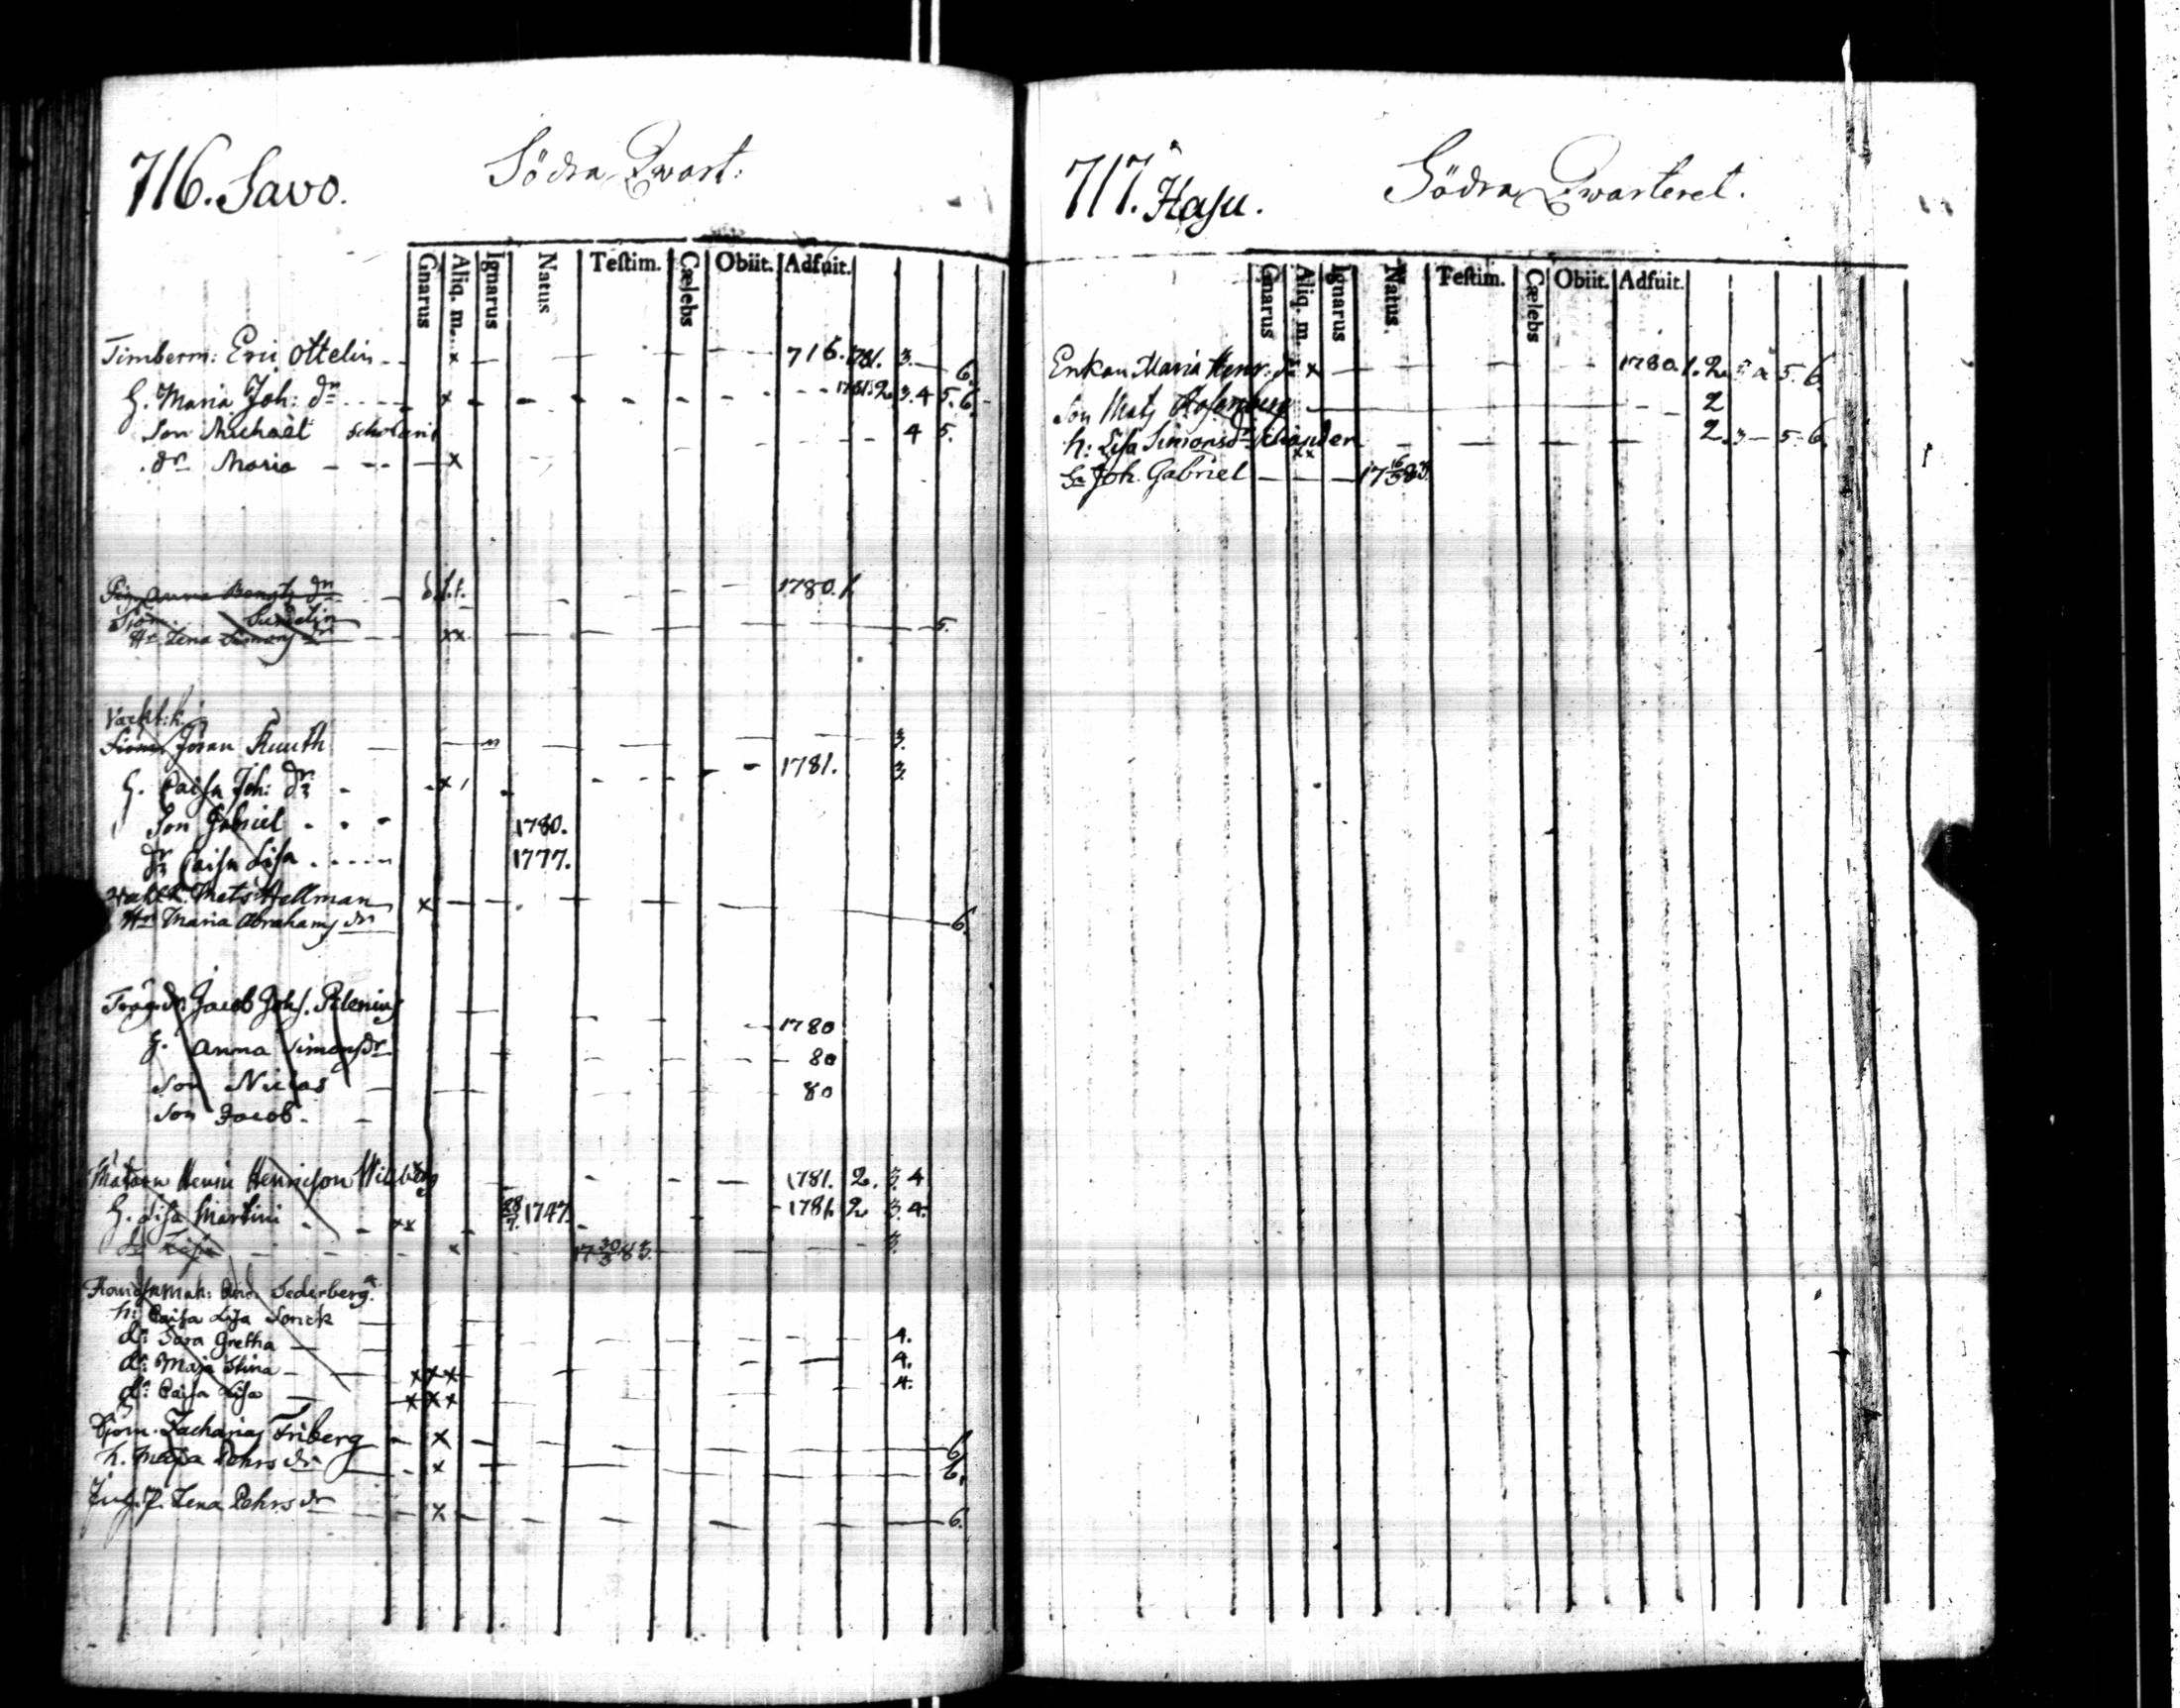 716. Savo. Södra Qvart:
Gnarus Aliq. m. Ignarus Natus Teſtim. Cælebs Obiit. Adfuit.
Timberm: Eric Ottelin x 716. 1781. 3. 6.
H. Maria Joh: dr x 1781. 2. 3. 4 5. 6.
Son Michaël 4 5.
dr Maria x
Anna Bengts dr 1780. 1.
Sjöm. Sundelin 5.
Hu Lena Simons dr xx
Vackt:k.
Jöran Kuuth 3.
H. Caisa Joh: dr x 1781. 3.
Son Gabriel 1780.
dr Caisa Lisa 1777.
Mats Hellman x
Hu Maria Abrahams dr 6.
Jacob Johs. Pilenius 1780
H. Anna Simonsdr 80
Son Niclas 80
Son Jacob.
Henric Henricson 1781. 2. 3. 4
H. Lisa Martini xx 28/7. 1747. 1781. 2 3. 4.
dr Lisa x 17 30/3 83. 3.
Sederberg
h: Caisa Lisa
dr: Sara Gretha 4.
dr: Maja Stina xxx 4.
dr: Caisa Lisa xxx 4.
Sjöm. Zacharias Friberg x 6.
h. Maja Pehrs dr x 6.
Lena Pehrs dr x 6.
717. Södra Qvarteret.
Gnarus Aliq. m. Ignarus Natus. Teſtim. Cælebs Obiit. Adfuit.
Enkan Maria Henr: dr x 1780. 1. 2. 5. 6.
Son Mats Rosenberg 2
h: Lisa Simonsdr xx 2. 3 5. 6.
Sn Joh. Gabriel 17 16/3 83.